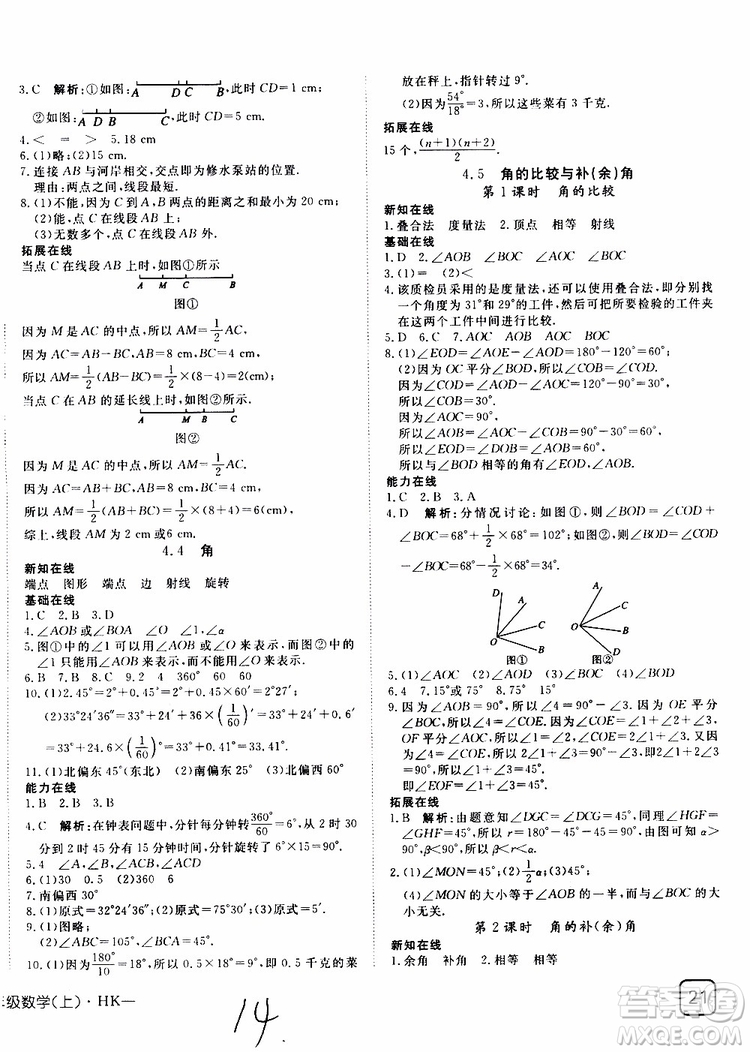 3. C　解析:①如图:A D C B,此时 CD=1 cm;
②如图:A D B C,此时 CD=1 cm.
4. <　=　>　5. 18 cm
6. (1)略;(2)15 cm.
7. 连接 AB 与河岸相交,交点即为修水泵站的位置.
理由:两点之间,线段最短.
8. (1)不能,因为点 C 到 A,B 两点的距离之和不小于 20 cm;
(2)能,点 C 在线段 AB 上;
(3)无数多个,点 C 在线段 AB 外.
拓展在线
当点 C 在线段 AB 上时,如图①所示
A M C B
图①
因为 M 是 AC 的中点,所以 AM=1/2 AC.
因为 AC=AB-BC,AB=8 cm,
所以 AM=1/2(AB-BC)=1/2×(8-4)=2(cm).
当点 C 在 AB 的延长线上时,如图②所示.
A M B C
图②
因为 M 是 AC 的中点,所以 AM=1/2 AC.
因为 AC=AB+BC,AB=8 cm,BC=4 cm,
所以 AM=1/2 AC=1/2(AB+BC)=1/2×(8+4)=6(cm).
综上,线段 AM 的长为 2 cm 或 6 cm.
4.4　角
新知在线
端点　图形　端点　边　射线　旋转
基础在线
1. C　2. B　3. D
4. ∠AOB 或∠BOA　∠O　∠1　∠α
5. 图①中的∠1 可以用∠AOB 或∠O 来表示.而图②中的
∠1 只能用∠AOB 来表示,不能用∠O 来表示.
6. B　7. B　8. 2　4　360°　9. C
10. (1)2.45°=2°+0.45×60′=2°+27′=2°27′;
(2)33°24′36″=33°+24′+36×(1/60)′=33°+24′+0.6′
=33°+24.6×(1/60)°=33°+0.41°=33.41°.
11. (1)北偏东 45°(东北)　(2)南偏东 60°
能力在线
1. B　2. B　3. B
4. C　解析:在钟表问题中,分针每分钟转360°/60=6°,从2时30
分到2时45分有15分钟,分针旋转了15×6°=90°.
5. 4　∠A,∠B,∠ACB,∠ACD
6. (1)30　(2)0.5　(3)360
7. 南偏西 30°
8. (1)原式=32°24′36″.(2)原式=75°30′.(3)原式=13°9′.
9. (1)图略.
(2)∠ABC=105°,∠C=45°.
10. (1)180°/10×0.5=9°,所以0.5千克的菜
放在秤上,指针转过 9°.
(2)因为54°/18°=3,所以这些菜有 3 千克.
拓展在线
15 个,(n+1)(n+2)/2.
4.5　角的比较与补(余)角
第 1 课时　角的比较
新知在线
1. 叠合法　度量法　2. 顶点　相等　射线
基础在线
1. D　2. ∠AOB　∠BOC　∠AOC　∠AOC
3. (1)=　(2)<
4. 该质检员采用的是度量法,还可以使用叠合法,即
一个角度为 31°和 29°的工件,然后可把要检验的工件夹
在这两个工件中间进行比较.
5. D　6. C　7. AOC　AOB　AOC
8. (1)∠EOD=∠AOE-∠AOD=180°-120°=60°;
(2)因为 OC 平分∠BOD,所以∠BOC=∠COD.
因为∠COD=∠AOD-∠AOC=120°-90°=30°,
所以∠BOC=30°,
所以∠AOB=∠AOC-∠BOC=90°-30°=60°,
所以∠AOB=∠EOD=60°,
所以与∠BOD 相等的角有∠EOD,∠AOB.
能力在线
1. C　2. B　3. A
4. D　解析:分情况讨论:如图①,∠BOD=∠BOC+∠COD
=68°+1/2×68°=102°;如图②,∠BOD=∠BOC-∠COD
=68°-1/2×68°=34°.
D A C O B 图①　A C D O B 图②
5. (1)∠AOC　(2)∠AOD　(3)∠BOC　(4)∠BOD
6. 4　7. 15°或 75°　8. 75°　15°
9. 因为∠2=∠3-∠1,所以∠1+∠2=∠3.因为 OE 平分
∠BOC,所以∠3+∠4=∠COE=∠1+∠2+∠1.又因为
OF 平分∠COE,所以∠2+∠1=∠3+∠4.
所以∠4=∠1.因为∠1+∠2+∠3+∠4=180°,
所以 2∠1+2∠3=90°,即∠1+∠3=45°.
拓展在线
1. B　解析:由题意知∠DGC=∠DCG=45°.同理∠HGF=
∠GHF=45°,所以 r=180°-45°-45°=90°.由图可知 α>
90°,β<90°,所以 β<r<α.
2. (1)∠MON=45°;(2)1/2α;(3)45°;
(4)∠MON 的大小等于∠AOB 的一半,而与∠BOC 的大
小无关.
第 2 课时　角的补(余)角
新知在线
1. 余角　补角　2. 相等　相等
年级数学(上)·HK—
14
21